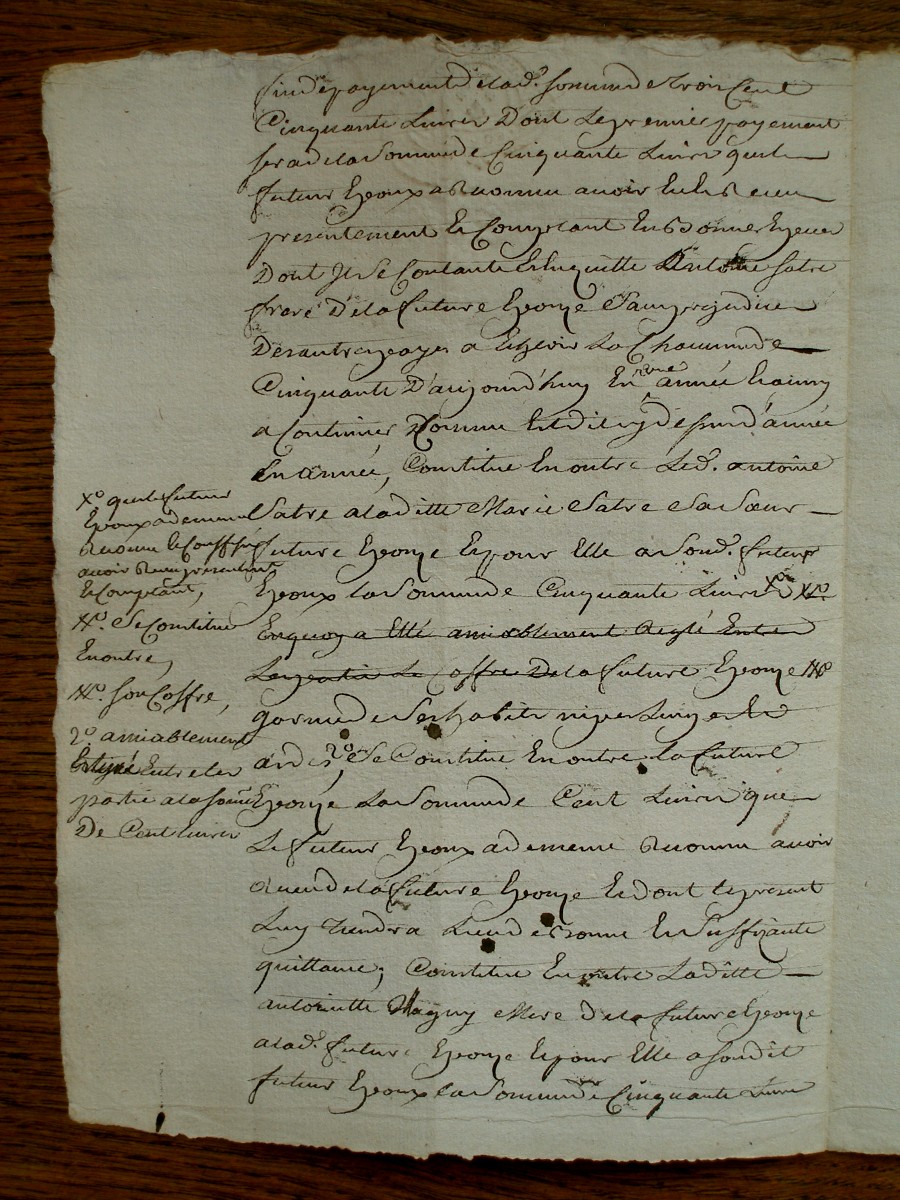 fin de payement de lad.e somme de trois cent
Cinquante Livres Dont Le premier payement
sera de la somme de Cinquante Livres que le
futur Epoux a Reconnu avoir Eu et Receu
presentement Et Comptant En Bonnes Especes
Dont Il se Contante Et En quitte Antoine Satre
frere De la future Epouse Sans prejudice
Des autres payes a Echeoir La Chacune de
Cinquante D'aujourd'huy En une année Et ainsy
a Continuer Comme Est dit cy dessus d'année
En année, Constitue En outre Led. antoine
Satre a laditte Marie Satre Sa Sœur
future Epouse Et pour Elle a sond. futur
Epoux la Somme de Cinquante Livres X.o #.o
En quoy a Eté amiablement Reglé Entre
Les partie Le Coffre De la future Epouse #.o
garny de Ses habits nipes Linges Et
ardes, 2.o Se Constitue En outre la future
Epouse La Somme de Cent Livres que
Le futeur Epoux a de meme Reconnu avoir
Receu de la future Epouse Et dont le present
Luy Tiendra Lieu de Bonne Et Suffizante
quittance; Constitue En outre Laditte
antoinette Magny Mere De la future Epouse
a lad. future Epouse Et pour Elle a Son dit
futeur Epoux la Somme de Cinquante Livres
X.o que le futeur
Epoux a de meme
Reconnu Et Confessé
avoir Receu presentement
Et Comptant,
#.o Se Constitue
En outre,
#.o Son Coffre,
2.o amiablement
Estimé Entre les
partie a la Somme
De Cent Livres